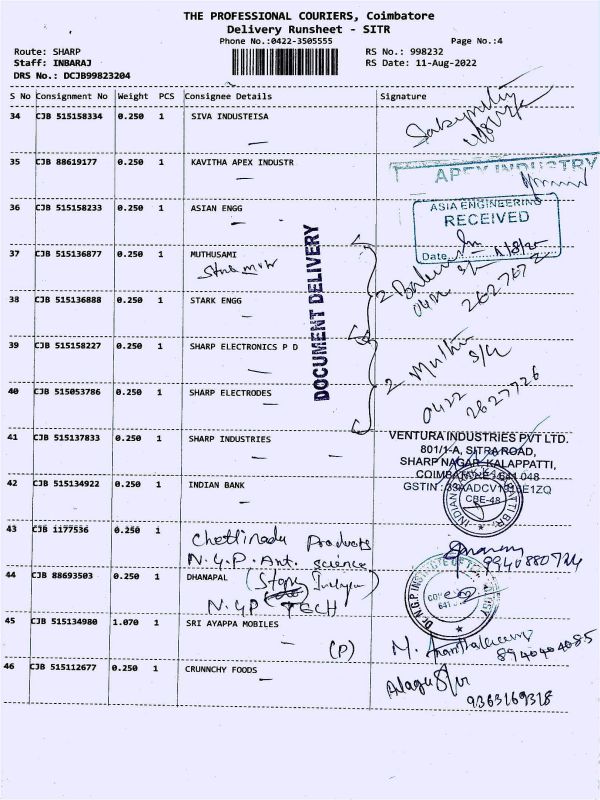 THE PROFESSIONAL COURIERS, Coimbatore
Delivery Runsheet - SITR
Phone No.:0422-3505555
Page No.:4
Route: SHARP
RS No.: 998232
Staff: INBARAJ
RS Date: 11-Aug-2022
DRS No.: DCJB99823204
S No Consignment No Weight PCS Consignee Details Signature
34 CJB 515158334 0.250 1 SIVA INDUSTEISA
35 CJB 88619177 0.250 1 KAVITHA APEX INDUSTR
APEX INDUSTRY
36 CJB 515158233 0.250 1 ASIAN ENGG
ASIA ENGINEERING
RECEIVED
Date
37 CJB 515136877 0.250 1 MUTHUSAMI
DOCUMENT DELIVERY
2
0422
262767 2
38 CJB 515136888 0.250 1 STARK ENGG
39 CJB 515158227 0.250 1 SHARP ELECTRONICS P D
2 Muthu
40 CJB 515053786 0.250 1 SHARP ELECTRODES
0422 2627726
41 CJB 515137833 0.250 1 SHARP INDUSTRIES
VENTURA INDUSTRIES PVT LTD.
801/1-A, SITRA ROAD,
SHARP NAGAR, KALAPPATTI,
COIMBATORE - 641 048
GSTIN :
42 CJB 515134922 0.250 1 INDIAN BANK
INDIAN
CBE-48
43 CJB 1177536 0.250 1
Chettinadu Products
N.G.P. Art. science
9940880724
44 CJB 88693503 0.250 1 DHANAPAL
N.G.P TECH
Dr. N.G.P. INSTITUTE OF TECH
45 CJB 515134980 1.070 1 SRI AYAPPA MOBILES
(P) M.
8940404085
46 CJB 515112677 0.250 1 CRUNNCHY FOODS
9363169318